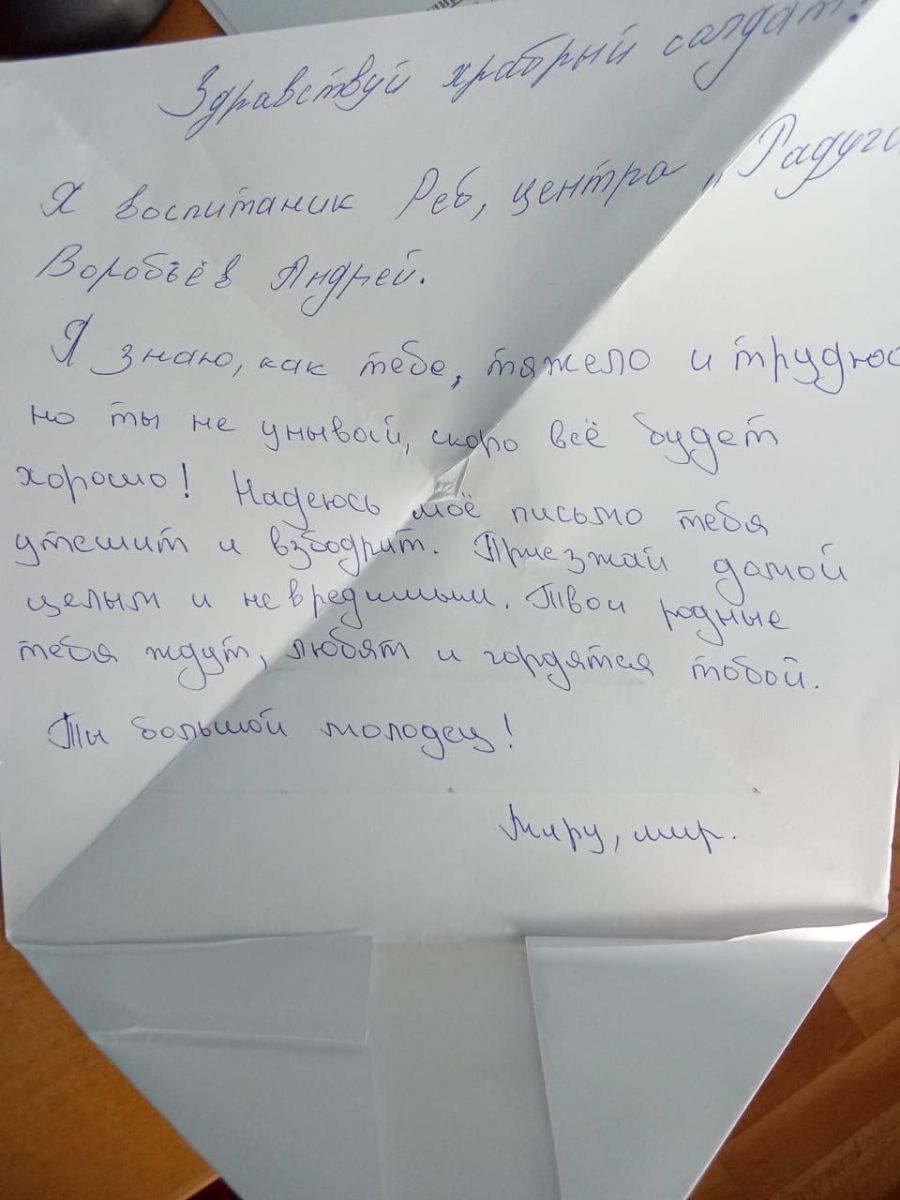 Здравствуй храбрый солдат!
Я воспитаник Реб, центра „Радуга
Воробьёв Андрей.
Я знаю, как тебе, тяжело и трудно
но ты не унывай, скоро всё будет
хорошо! Надеюсь моё письмо тебя
утешит и взбодрит. Приезжай домой
целым и невредимым. Твои родные
тебя ждут, любят и гордятся тобой.
Ты большой молодец!
Миру, мир.